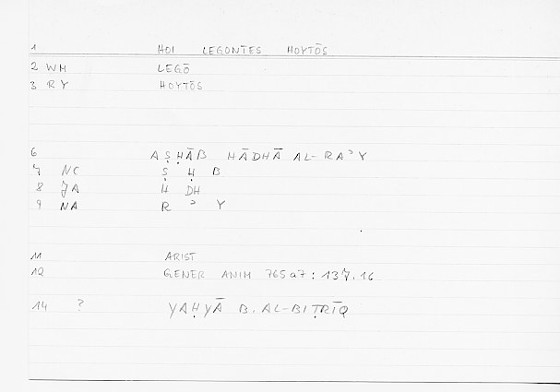 1 HOI LEGONTES HOYTŌS
2 WM LEGŌ
3 RY HOYTŌS
6 AṢḤĀB HĀDHĀ AL-RAʾY
7 NC Ṣ Ḥ B
8 JA H DH
9 NA R ʾ Y
11 ARIST
12 GENER ANIM 765a7 : 137,16
14 ? YAḤYĀ B. AL-BIṬRĪQ